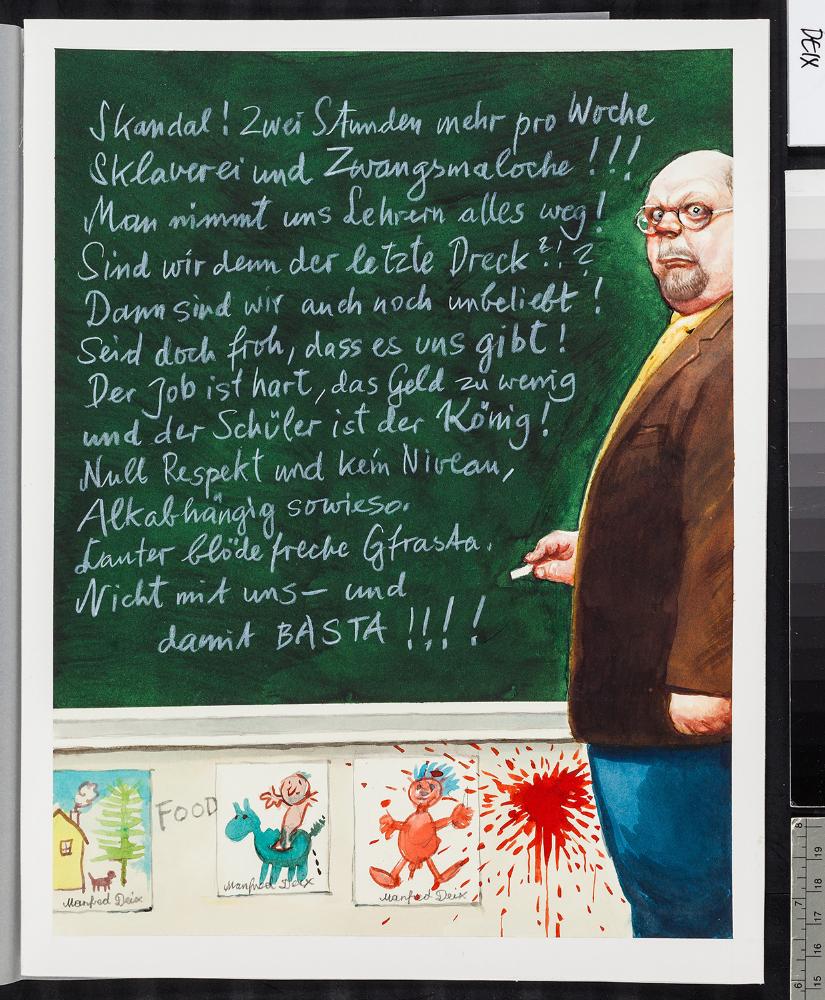 Skandal! Zwei Stunden mehr pro Woche
Sklaverei und Zwangsmaloche!!!
Man nimmt uns Lehrern alles weg!
Sind wir denn der letzte Dreck?!?
Dann sind wir auch noch unbeliebt!
Seid doch froh, dass es uns gibt!
Der Job ist hart, das Geld zu wenig
und der Schüler ist der König!
Null Respekt und kein Niveau,
Alkabhängig sowieso.
Lauter blöde freche Gfrasta.
Nicht mit uns – und
damit BASTA!!!!
FOOD
Manfred Deix
Manfred Deix
Manfred Deix
DEIX
8
7
6
19
18
17
16
15